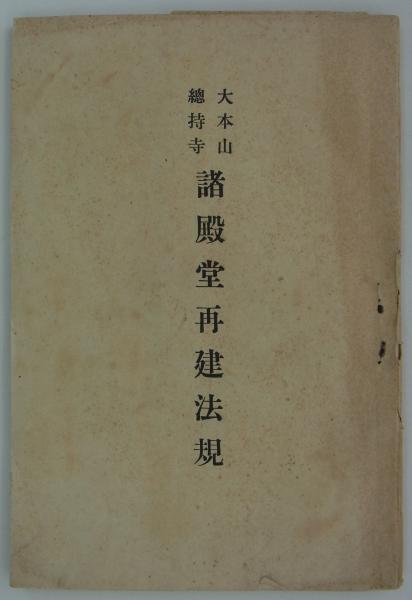 大本山
總持寺
諸殿堂再建法規